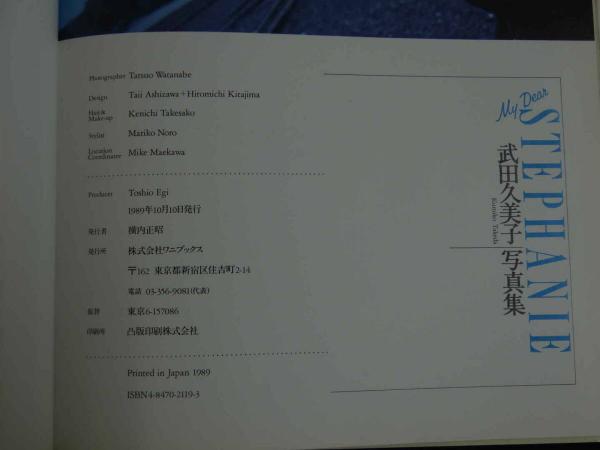 Photographer Tatsuo Watanabe
Design Taii Ashizawa+Hiromichi Kitajima
Hair& Make-up Kenichi Takesako
Stylist Mariko Noro
Location Coordinator Mike Maekawa
Producer Toshio Egi
1989年10月10日発行
発行者 横内正昭
発行所 株式会社ワニブックス
〒162 東京都新宿区住吉町2-14
電話 03-356-9081(代表)
振替 東京6-157086
印刷所 凸版印刷株式会社
Printed in Japan 1989
ISBN4-8470-2119-3
My Dear
STEPHANIE
武田久美子 写真集
Kumiko Takeda